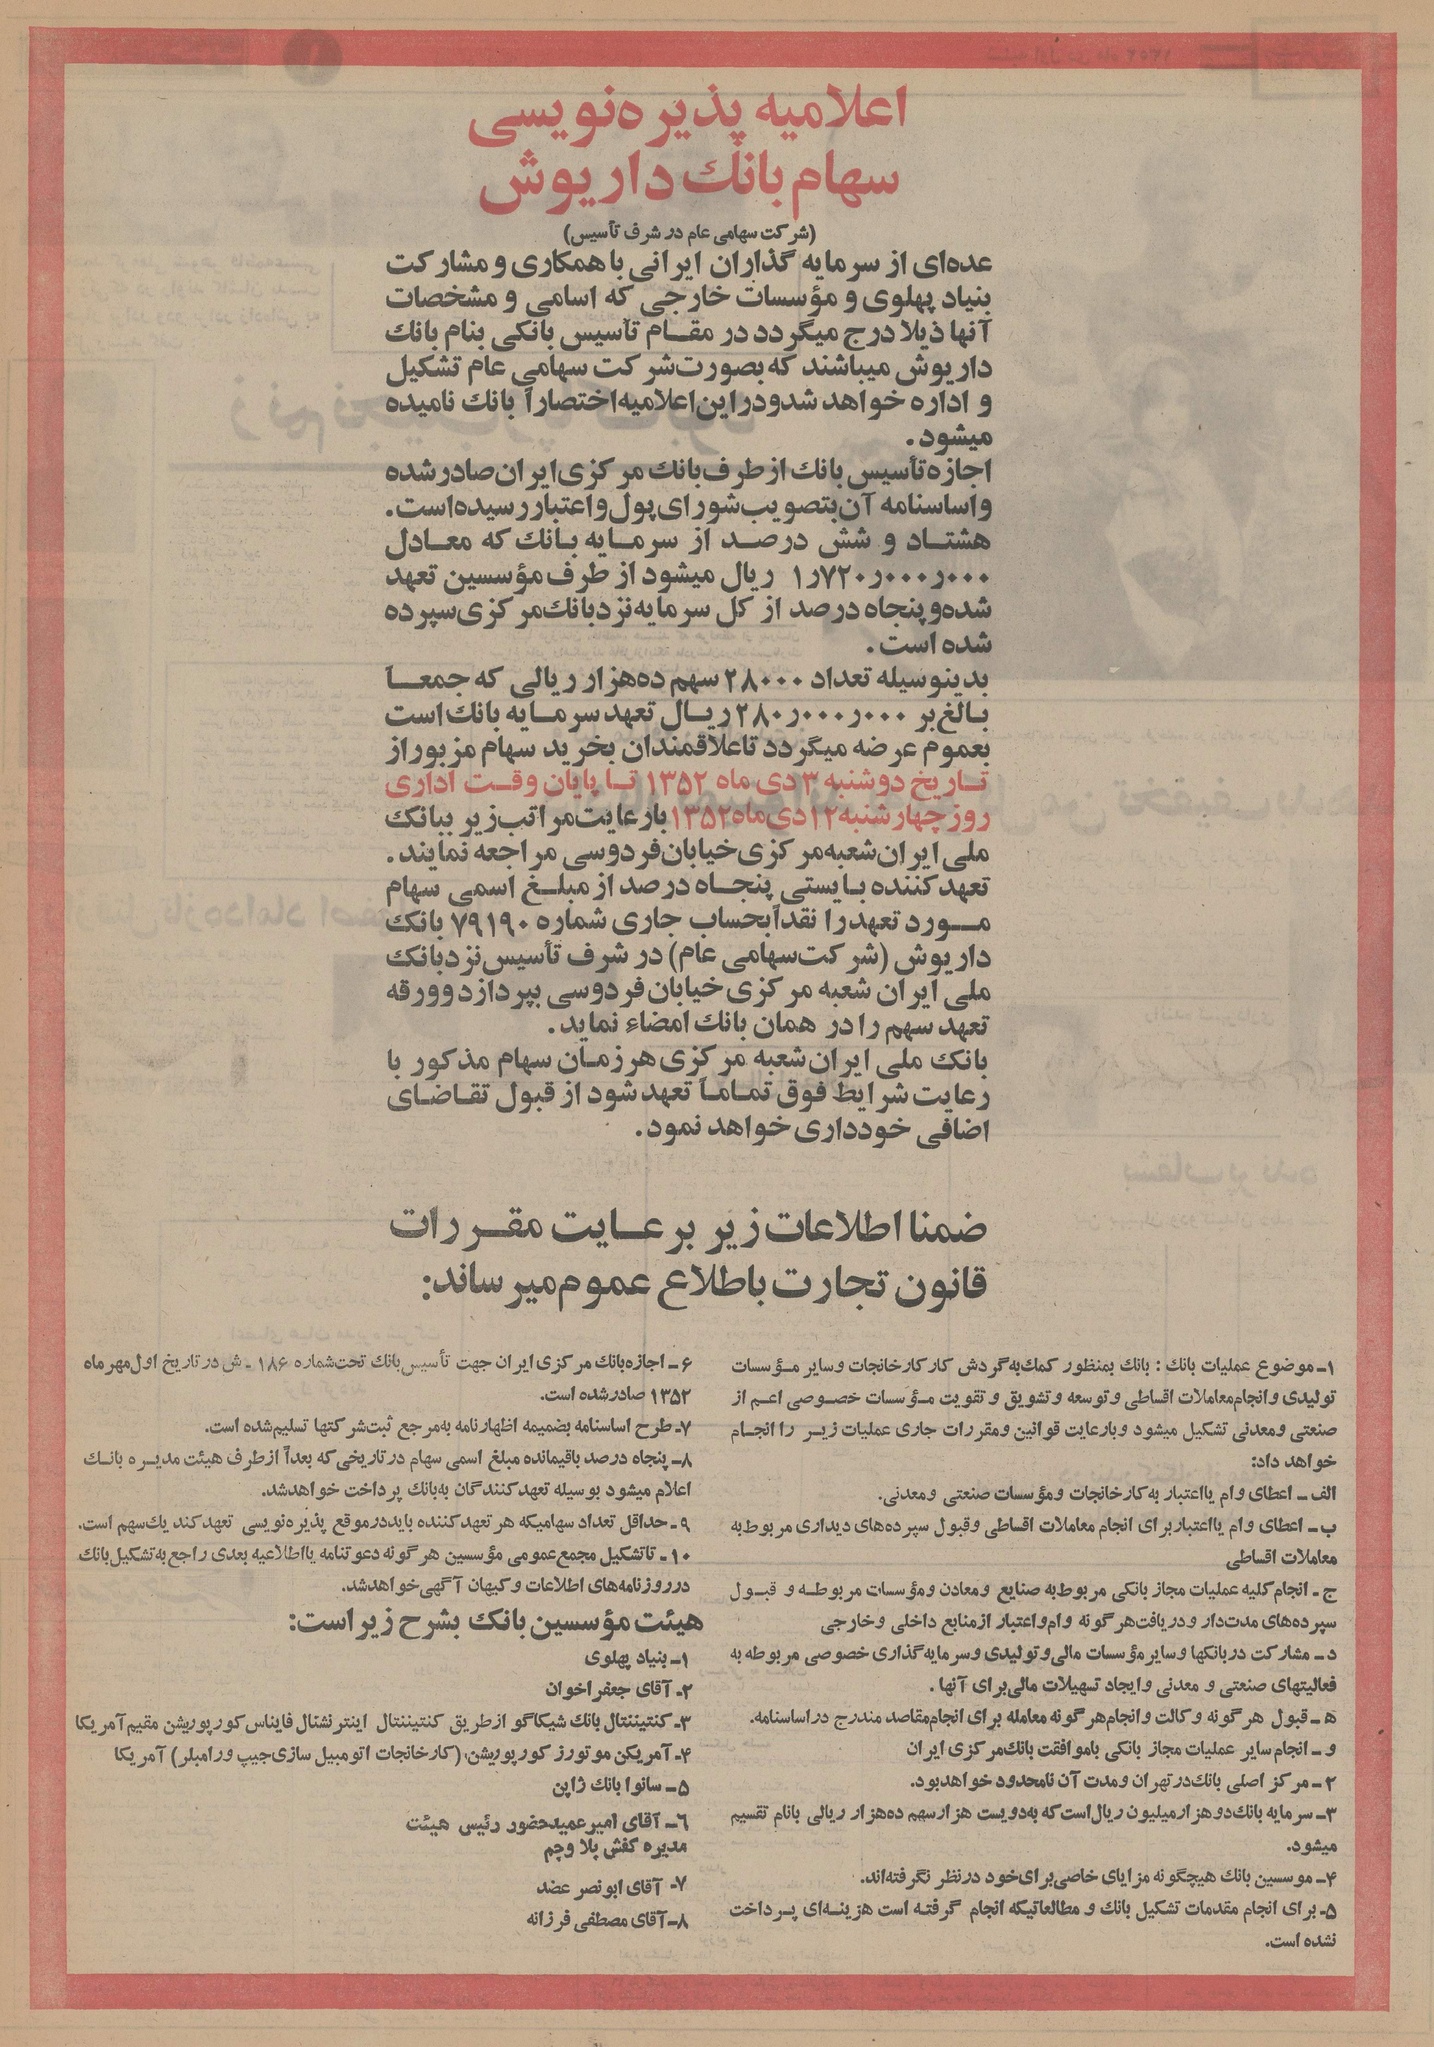 اعلامیه پذیره‌نویسی
سهام بانک داریوش
(شرکت سهامی عام در شرف تأسیس)
عده‌ای از سرمایه گذاران ایرانی با همکاری و مشارکت
بنیاد پهلوی و مؤسسات خارجی که اسامی و مشخصات
آنها ذیلا درج میگردد در مقام تأسیس بانکی بنام بانک
داریوش میباشند که بصورت شرکت سهامی عام تشکیل
و اداره خواهد شد و در این اعلامیه اختصاراً بانک نامیده
میشود.
اجازه تأسیس بانک از طرف بانک مرکزی ایران صادر شده
و اساسنامه آن بتصویب شورای پول و اعتبار رسیده است.
هشتاد و شش درصد از سرمایه بانک که معادل
۱٫۷۲۰٫۰۰۰٫۰۰۰ ریال میشود از طرف مؤسسین تعهد
شده و پنجاه درصد از کل سرمایه نزد بانک مرکزی سپرده
شده است.
بدینوسیله تعداد ۲۸۰۰۰ سهم ده‌هزار ریالی که جمعاً
بالغ بر ۲۸۰٫۰۰۰٫۰۰۰ ریال تعهد سرمایه بانک است
بعموم عرضه میگردد تا علاقمندان بخرید سهام مزبور از
تاریخ دوشنبه ۳ دی ماه ۱۳۵۲ تا پایان وقت اداری
روز چهارشنبه ۱۲ دی‌ماه ۱۳۵۲ با رعایت مراتب زیر ببانک
ملی ایران شعبه مرکزی خیابان فردوسی مراجعه نمایند.
تعهد کننده بایستی پنجاه درصد از مبلغ اسمی سهام
مورد تعهد را نقداً بحساب جاری شماره ۷۹۱۹۰ بانک
داریوش (شرکت سهامی عام) در شرف تأسیس نزد بانک
ملی ایران شعبه مرکزی خیابان فردوسی بپردازد و ورقه
تعهد سهم را در همان بانک امضاء نماید.
بانک ملی ایران شعبه مرکزی هر زمان سهام مذکور با
رعایت شرایط فوق تماماً تعهد شود از قبول تقاضای
اضافی خودداری خواهد نمود.
ضمنا اطلاعات زیر بر عایت مقررات
قانون تجارت باطلاع عموم میرساند:
۱ـ موضوع عملیات بانک : بانک بمنظور کمک به گردش کار کارخانجات و سایر مؤسسات
تولیدی و انجام معاملات اقساطی و توسعه و تشویق و تقویت مؤسسات خصوصی اعم از
صنعتی و معدنی تشکیل میشود و با رعایت قوانین و مقررات جاری عملیات زیر را انجام
خواهد داد:
الف ـ اعطای وام یا اعتبار به کارخانجات و مؤسسات صنعتی و معدنی.
ب ـ اعطای وام یا اعتبار برای انجام معاملات اقساطی و قبول سپرده‌های دیداری مربوط به
معاملات اقساطی
ج ـ انجام کلیه عملیات مجاز بانکی مربوط به صنایع و معادن و مؤسسات مربوطه و قبول
سپرده‌های مدت‌دار و دریافت هر گونه وام و اعتبار از منابع داخلی و خارجی
د ـ مشارکت در بانکها و سایر مؤسسات مالی و تولیدی و سرمایه گذاری خصوصی مربوطه به
فعالیتهای صنعتی و معدنی و ایجاد تسهیلات مالی برای آنها .
ه ـ قبول هر گونه وکالت و انجام هر گونه معامله برای انجام مقاصد مندرج در اساسنامه.
و ـ انجام سایر عملیات مجاز بانکی با موافقت بانک مرکزی ایران
۲ ـ مرکز اصلی بانک در تهران و مدت آن نامحدود خواهد بود.
۳ـ سرمایه بانک دو هزار میلیون ریال است که به دویست هزار سهم ده‌هزار ریالی بانام تقسیم
میشود.
۴ـ موسسین بانک هیچگونه مزایای خاصی برای خود در نظر نگرفته‌اند.
۵ـ برای انجام مقدمات تشکیل بانک و مطالعاتیکه انجام گرفته است هزینه‌ای پرداخت
نشده است.
۶ـ اجازه بانک مرکزی ایران جهت تأسیس بانک تحت شماره ۱۸۶ ـ ش در تاریخ اول مهر ماه
۱۳۵۲ صادر شده است.
۷ـ طرح اساسنامه بضمیمه اظهارنامه به مرجع ثبت شرکتها تسلیم شده است.
۸ـ پنجاه درصد باقیمانده مبلغ اسمی سهام در تاریخی که بعداً از طرف هیئت مدیره بانک
اعلام میشود بوسیله تعهد کنندگان به بانک پرداخت خواهد شد.
۹ـ حداقل تعداد سهامیکه هر تعهد کننده باید در موقع پذیره نویسی تعهد کند یک سهم است.
۱۰ـ تا تشکیل مجمع عمومی مؤسسین هر گونه دعوتنامه یا اطلاعیه بعدی راجع به تشکیل بانک
در روزنامه‌های اطلاعات و کیهان آگهی خواهد شد.
هیئت مؤسسین بانک بشرح زیر است:
۱ـ بنیاد پهلوی
۲ـ آقای جعفر اخوان
۳ـ کنتیننتال بانک شیکاگو از طریق کنتیننتال اینترنشنال فایناس کورپوریشن مقیم آمریکا
۴ـ آمریکن موتورز کورپوریشن (کارخانجات اتومبیل سازی جیپ و رامبلر) آمریکا
۵ ـ سانوا بانک ژاپن
۶ـ آقای امیر عمیدحضور رئیس هیئت
مدیره کفش بلا و جم
۷ـ آقای ابونصر عضد
۸ـ آقای مصطفی فرزانه